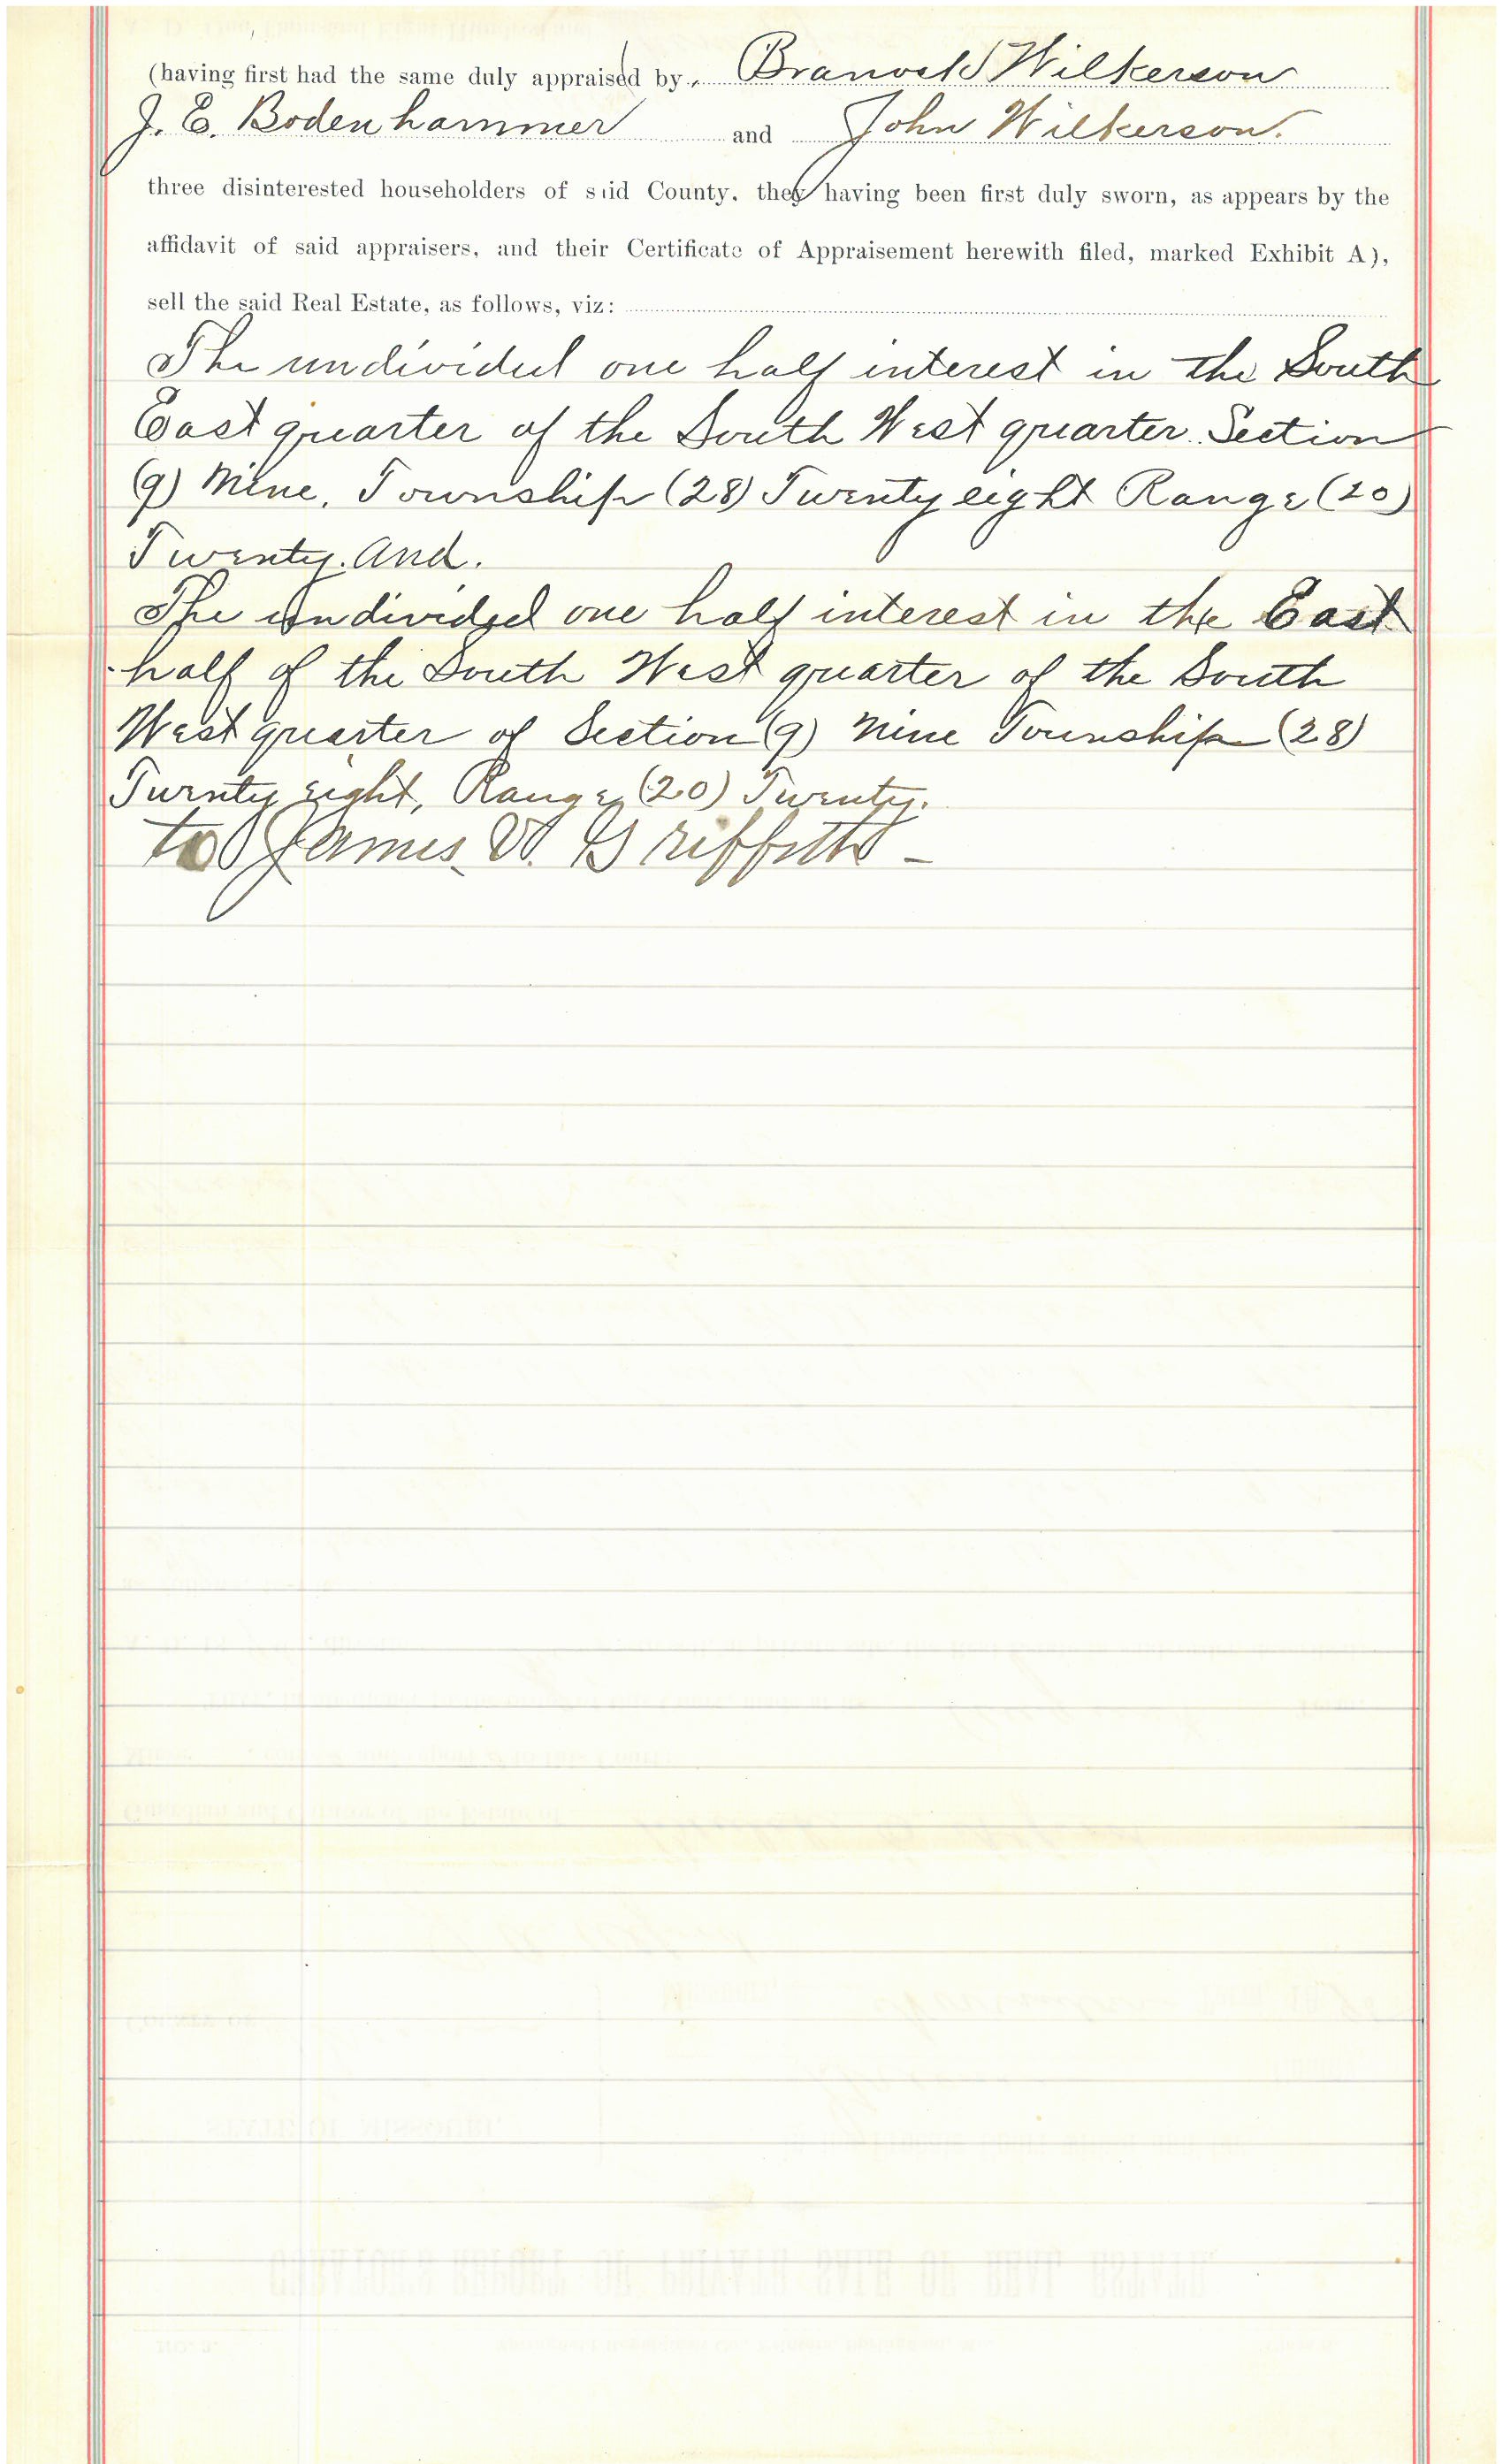 (having first had the same duly appraised by, Branock Wilkerson
J. E. Bodenhammer and John Wilkerson.
three disinterested householders of said County, they having been first duly sworn, as appears by the
affidavit of said appraisers, and their Certificate of Appraisement herewith filed, marked Exhibit A),
sell the said Real Estate, as follows, viz:
The undivided one half interest in the South
East quarter of the South West quarter Section
(9) Nine, Township (28) Twenty eight Range (20)
Twenty. and.
The undivided one half interest in the East
half of the South West quarter of the South
West quarter of Section (9) Nine Township (28)
Twenty eight, Range (20) Twenty.
to James V. Griffith